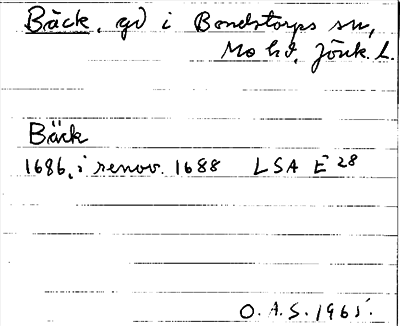 Bäck, gd i Bondstorps sn,
Mo hd, Jönk. l.
Bäck
1686, i renov. 1688 LSA E 28
O. A. S. 1965.